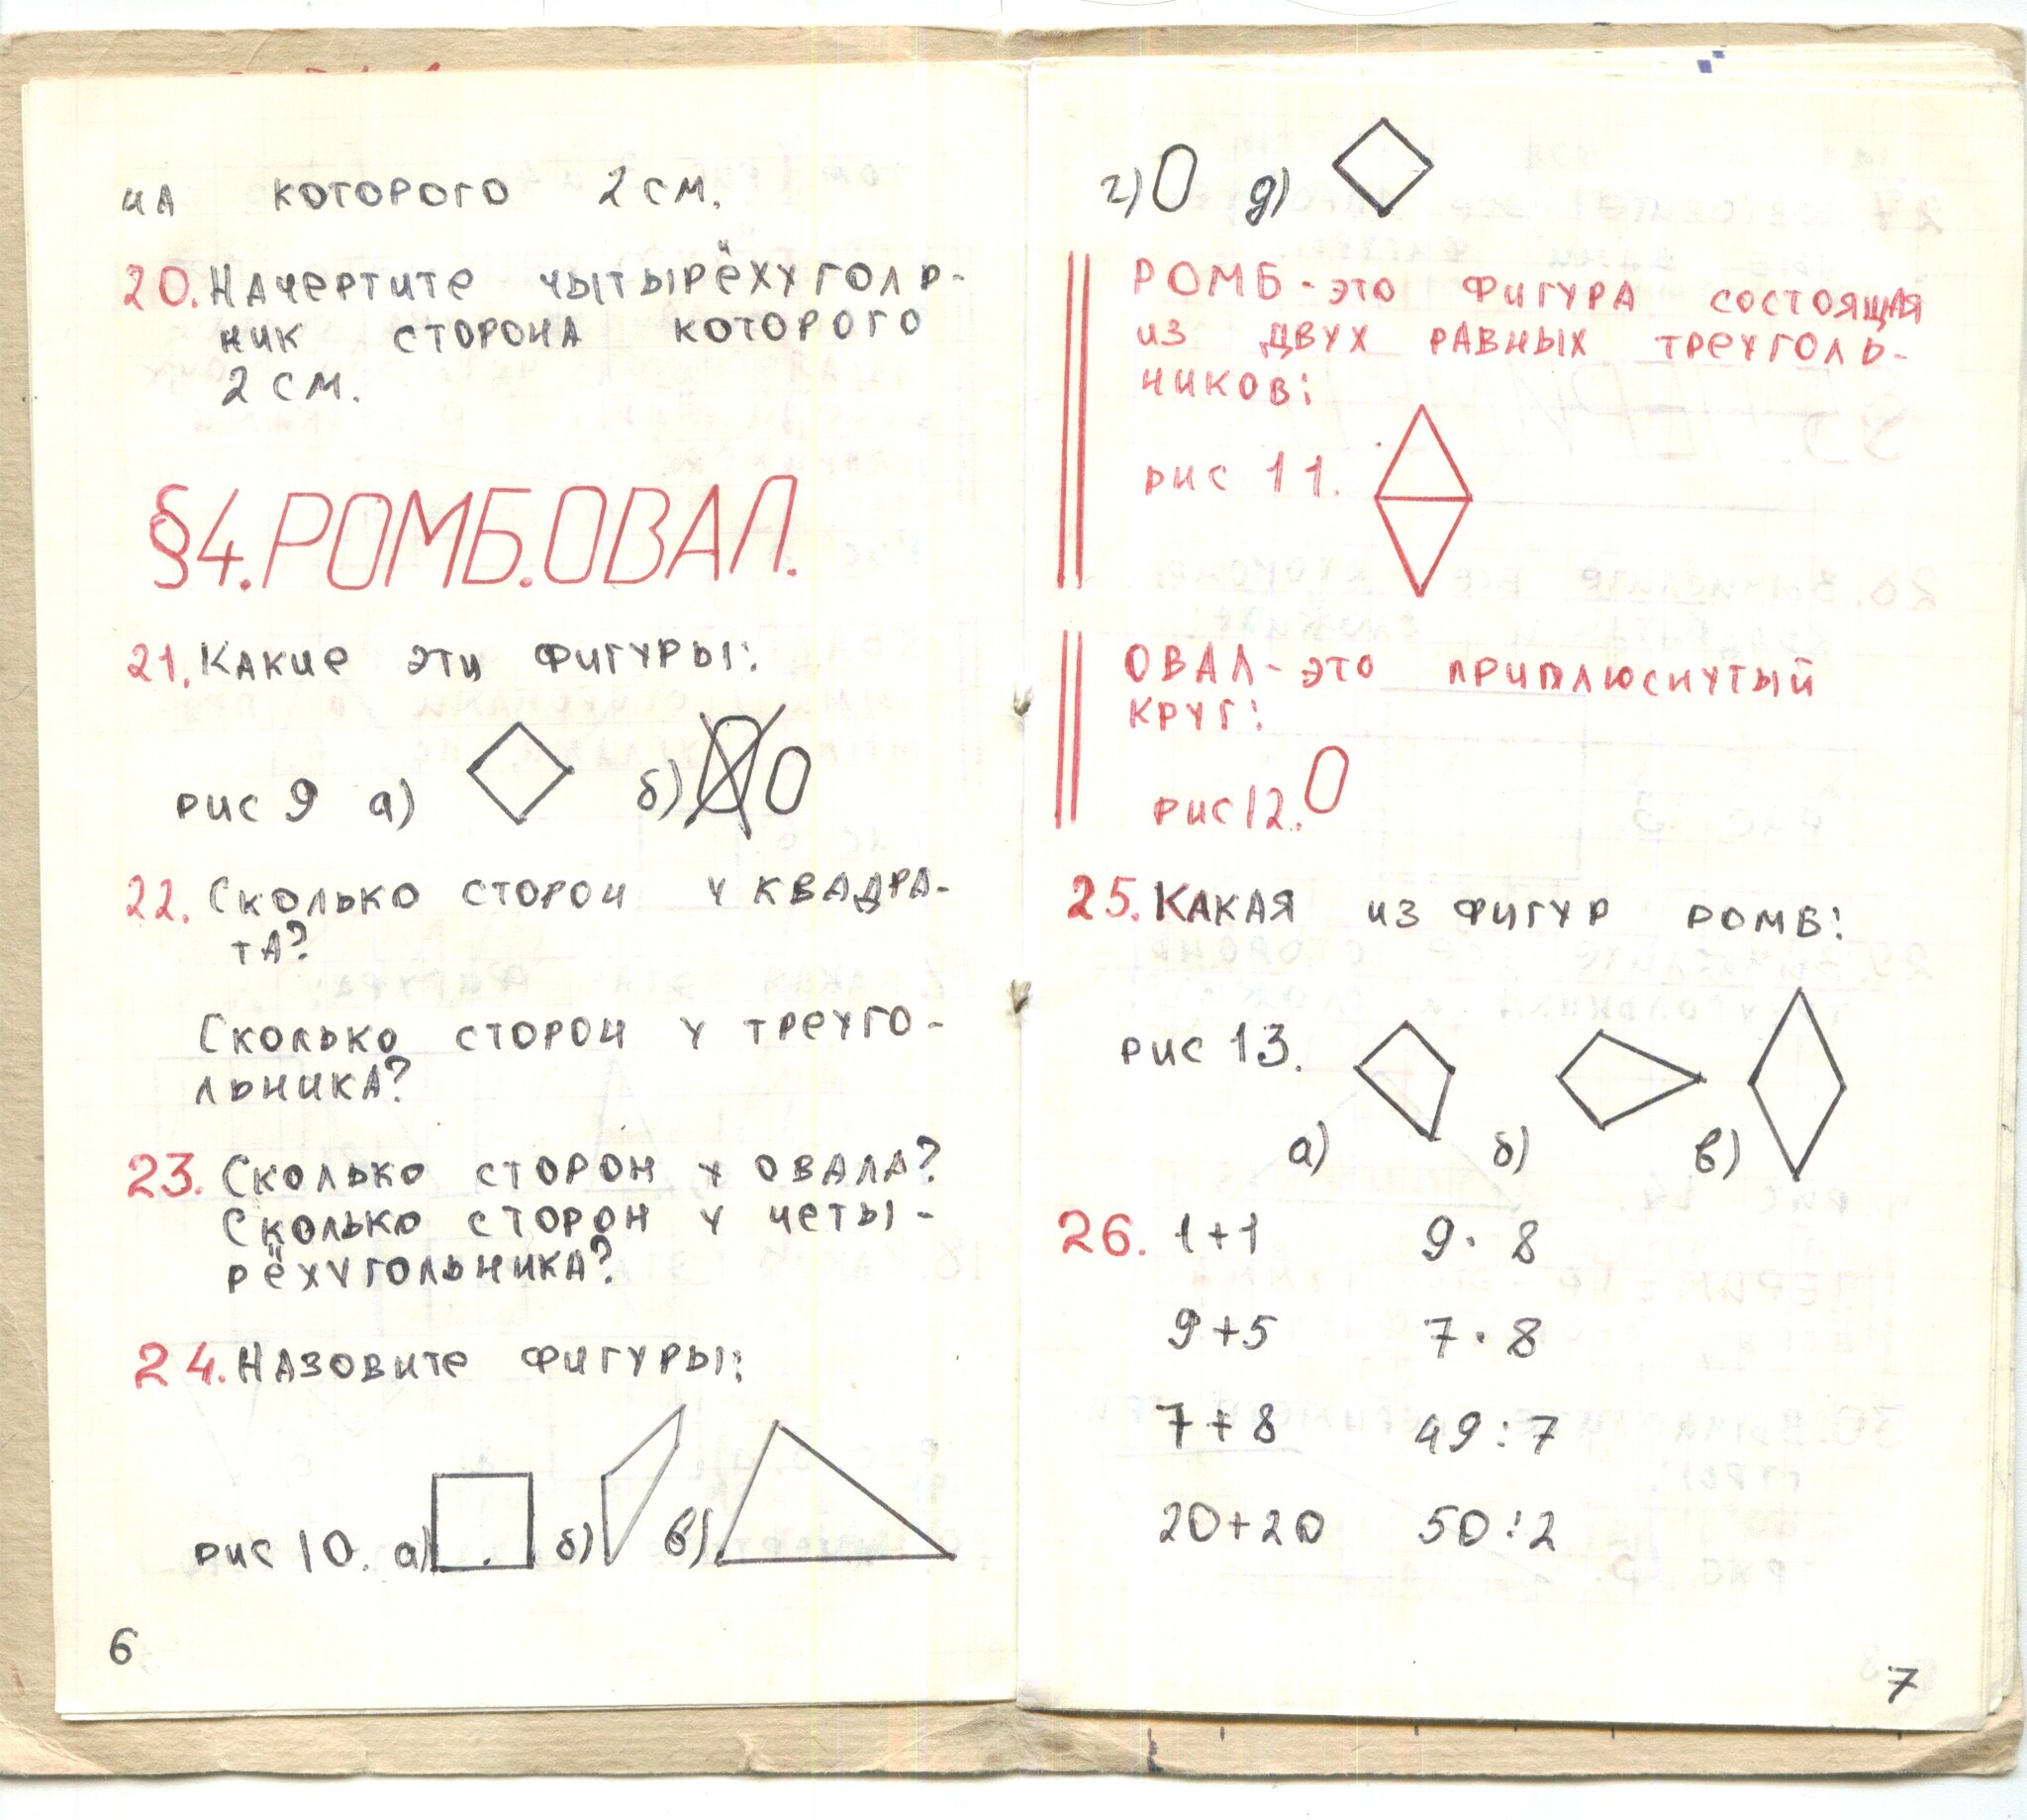 на которого 2 см.
20. Начертите чытырёхуголь-
ник сторона которого
2 см.
§4. РОМБ. ОВАЛ.
21. Какие эти фигуры:
рис 9 а) б)
22. Сколько сторон у квадра-
та?
Сколько сторон у треуго-
льника?
23. Сколько сторон у овала?
Сколько сторон у четы-
рёхугольника?
24. Назовите фигуры:
рис 10. а) б) в)
6
г) д)
РОМБ - это фигура состоящая
из двух равных треуголь-
ников:
рис 11.
ОВАЛ - это приплюснутый
круг:
рис 12.
25. Какая из фигур ромб:
рис 13.
а) б) в)
26. 1+1 9·8
9+5 7·8
7+8 49:7
20+20 50:2
7